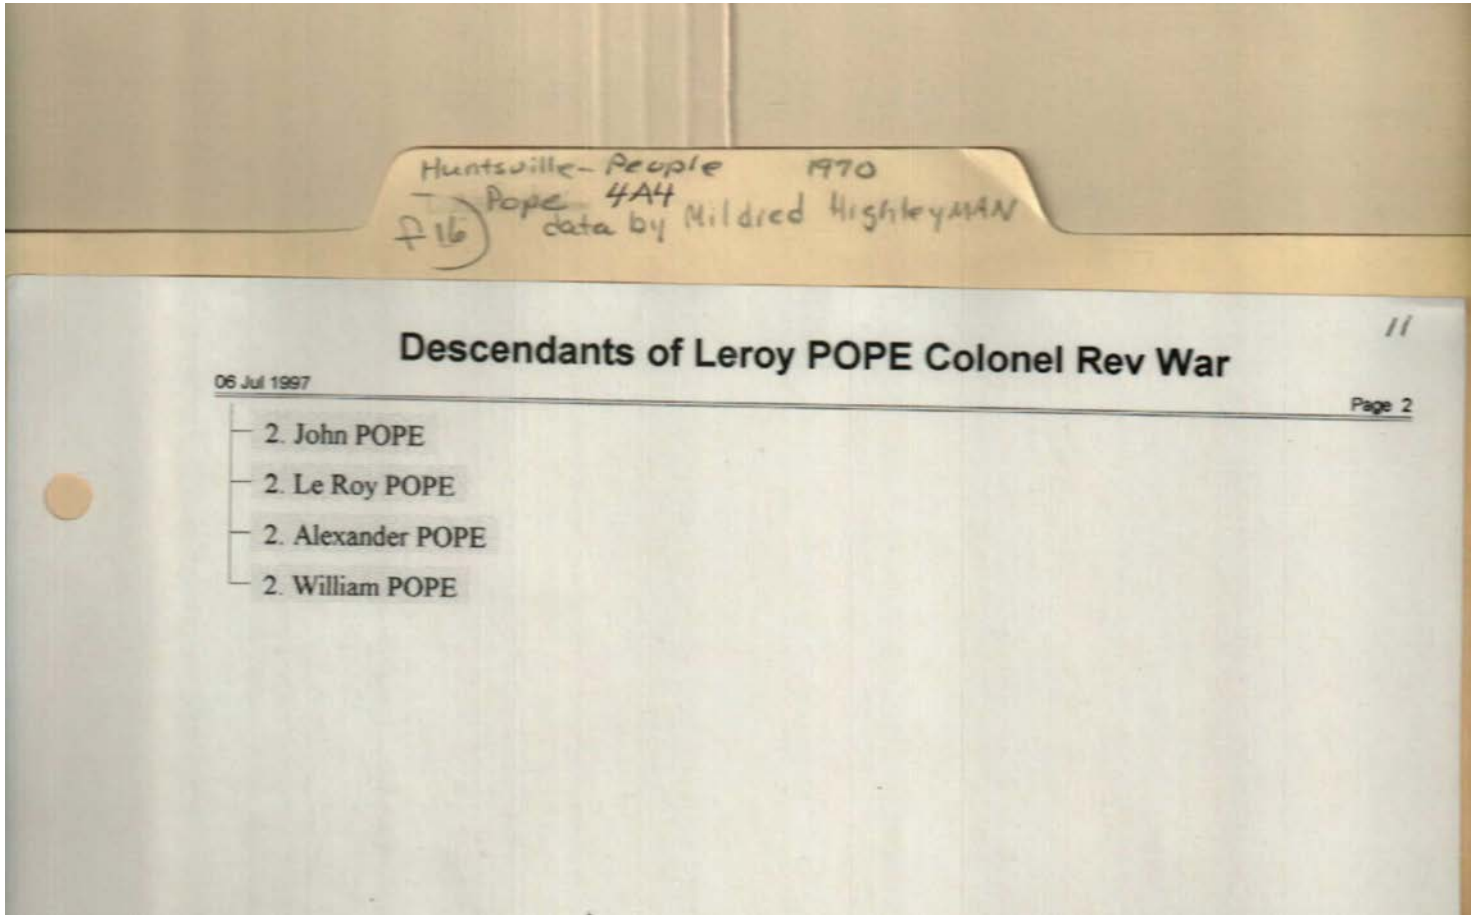 Huntsville - People 1970
Pope 4A4
f16 data by Mildred HighleyMAN
11
Descendants of Leroy POPE Colonel Rev War
06 Jul 1997
Page 2
2. John POPE
2. Le Roy POPE
2. Alexander POPE
2. William POPE